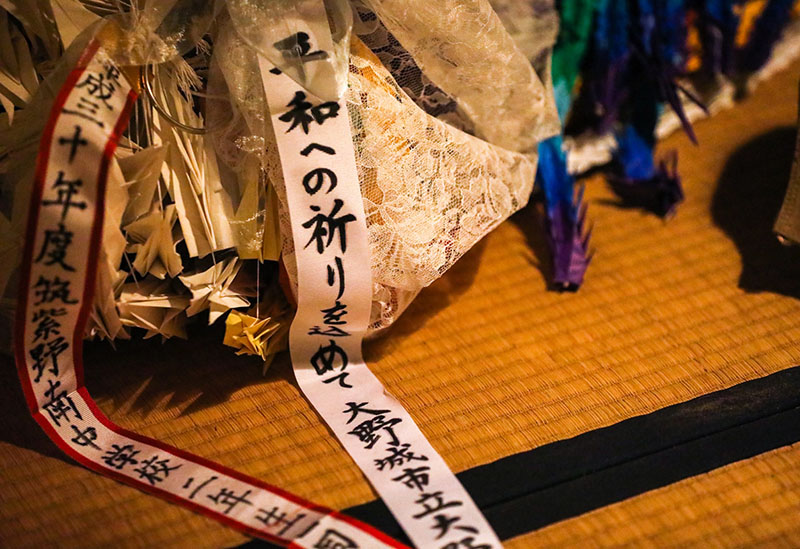 平和への祈りを込めて 大野城市立大野
成三十年度筑紫野南中学校 二年生一同